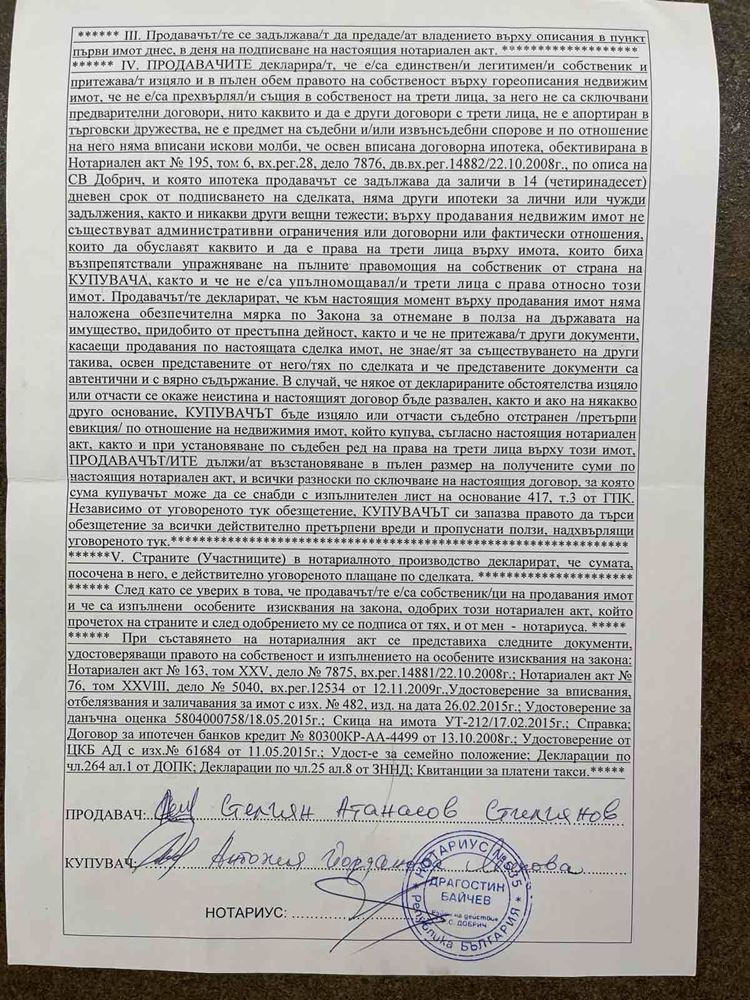 ****** III. Продавачът/те се задължава/т да предаде/ат владението върху описания в пункт
първи имот днес, в деня на подписване на настоящия нотариален акт. *******************
****** IV. ПРОДАВАЧИТЕ декларира/т, че е/са единствен/и легитимен/и собственик и
притежава/т изцяло и в пълен обем правото на собственост върху гореописания недвижим
имот, че не е/са прехвърлял/и същия в собственост на трети лица, за него не са сключвани
предварителни договори, нито каквито и да е други договори с трети лица, не е апортиран в
търговски дружества, не е предмет на съдебни и/или извънсъдебни спорове и по отношение
на него няма вписани искови молби, че освен вписана договорна ипотека, обективирана в
Нотариален акт № 195, том 6, вх.рег.28, дело 7876, дв.вх.рег.14882/22.10.2008г., по описа на
СВ Добрич, и която ипотека продавачът се задължава да заличи в 14 (четиринадесет)
дневен срок от подписването на сделката, няма други ипотеки за лични или чужди
задължения, както и никакви други вещни тежести; върху продавания недвижим имот не
съществуват административни ограничения или договорни или фактически отношения,
които да обуславят каквито и да е права на трети лица върху имота, които биха
възпрепятствали упражняване на пълните правомощия на собственик от страна на
КУПУВАЧА, както и че не е/са упълномощавал/и трети лица с права относно този
имот. Продавачът/те декларират, че към настоящия момент върху продавания имот няма
наложена обезпечителна мярка по Закона за отнемане в полза на държавата на
имущество, придобито от престъпна дейност, както и че не притежава/т други документи,
касаещи продавания по настоящата сделка имот, не знае/ят за съществуването на други
такива, освен представените от него/тях по сделката и че представените документи са
автентични и с вярно съдържание. В случай, че някое от декларираните обстоятелства изцяло
или отчасти се окаже неистина и настоящият договор бъде развален, както и ако на някакво
друго основание, КУПУВАЧЪТ бъде изцяло или отчасти съдебно отстранен /претърпи
евикция/ по отношение на недвижимия имот, който купува, съгласно настоящия нотариален
акт, както и при установяване по съдебен ред на права на трети лица върху този имот,
ПРОДАВАЧЪТ/ИТЕ дължи/ат възстановяване в пълен размер на получените суми по
настоящия нотариален акт, и всички разноски по сключване на настоящия договор, за която
сума купувачът може да се снабди с изпълнителен лист на основание 417, т.3 от ГПК.
Независимо от уговореното тук обезщетение, КУПУВАЧЪТ си запазва правото да търси
обезщетение за всички действително претърпени вреди и пропуснати ползи, надхвърлящи
уговореното тук.****************************************************************
******V. Страните (Участниците) в нотариалното производство декларират, че сумата,
посочена в него, е действително уговореното плащане по сделката. ***********************
****** След като се уверих в това, че продавачът/те е/са собственик/ци на продавания имот
и че са изпълнени особените изисквания на закона, одобрих този нотариален акт, който
прочетох на страните и след одобрението му се подписа от тях, и от мен - нотариуса. *****
****** При съставянето на нотариалния акт се представиха следните документи,
удостоверяващи правото на собственост и изпълнението на особените изисквания на закона:
Нотариален акт № 163, том XXV, дело № 7875, вх.рег.14881/22.10.2008г.; Нотариален акт №
76, том XXVIII, дело № 5040, вх.рег.12534 от 12.11.2009г.,Удостоверение за вписвания,
отбелязвания и заличавания за имот с изх. № 482, изд. на дата 26.02.2015г.; Удостоверение за
данъчна оценка 5804000758/18.05.2015г.; Скица на имота УТ-212/17.02.2015г.; Справка;
Договор за ипотечен банков кредит № 80300КР-АА-4499 от 13.10.2008г.; Удостоверение от
ЦКБ АД с изх.№ 61684 от 11.05.2015г.; Удост-е за семейно положение; Декларации по
чл.264 ал.1 от ДОПК; Декларации по чл.25 ал.8 от ЗННД; Квитанции за платени такси.*****
ПРОДАВАЧ: Стелиян Атанасов Стилиянов
КУПУВАЧ: Антония Йорданова
НОТАРИУС:
НОТАРИУС № 635
ДРАГОСТИН
БАЙЧЕВ
район на действие
С. ДОБРИЧ
Република БЪЛГАРИЯ